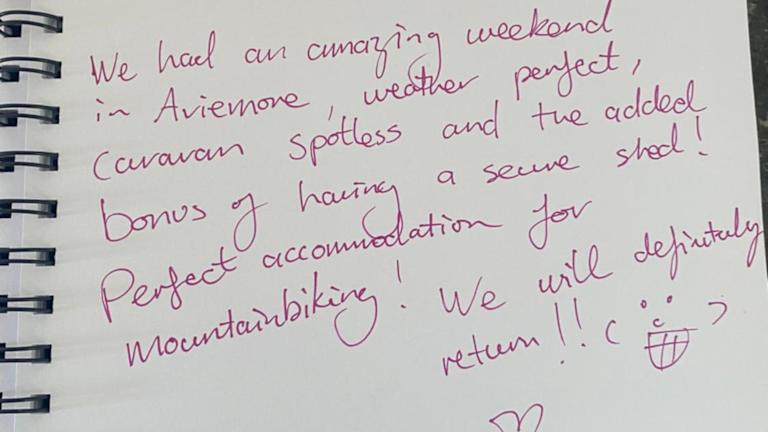 We had an amazing weekend
in Aviemore, weather perfect,
caravan spotless and the added
bonus of having a secure shed!
Perfect accommodation for
mountainbiking! We will definitely
return!!